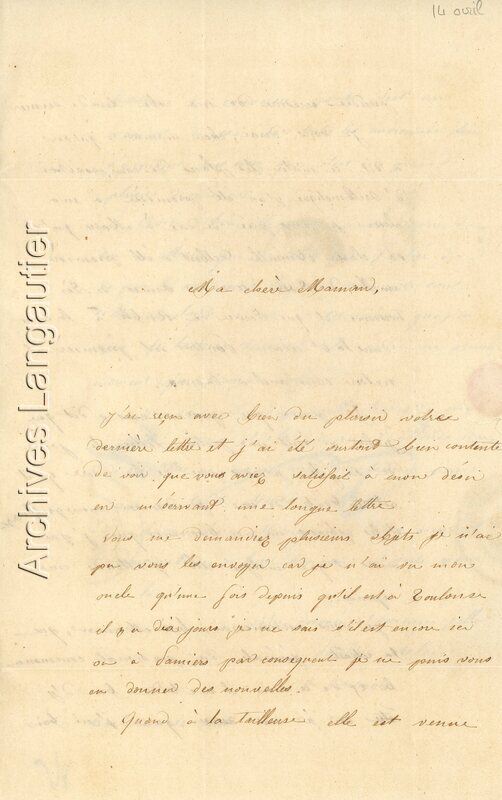 14 avril
Ma chère Maman,
J'ai reçu avec bien du plaisir votre
dernière lettre et j'ai été surtout bien contente
de voir que vous aviez satisfait à mon désir
en m'écrivant une longue lettre
Vous me demandiez plusieurs objets je n'ai
pu vous les envoyer car je n'ai vu mon
oncle qu'une fois depuis qu'il est à Toulouse
il y a dix jours je ne sais s'il est encore ici
ou à Pamiers par consequent je ne puis vous
en donner des nouvelles.
Quand à la tailleuse elle est venue
Archives Langautier